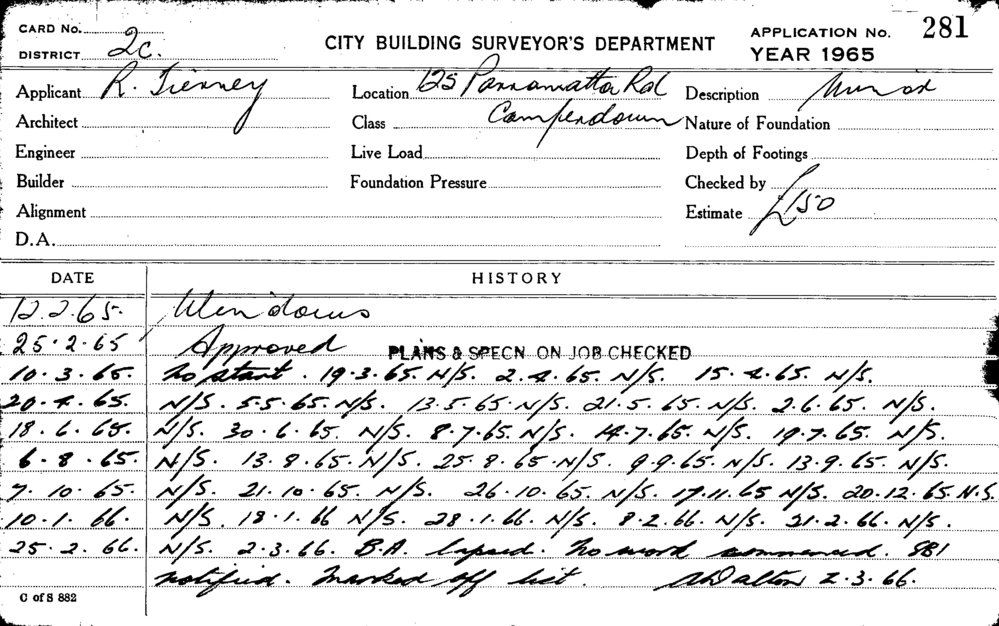 CARD No. CITY BUILDING SURVEYOR'S DEPARTMENT APPLICATION No. 281
DISTRICT 2c. YEAR 1965
Applicant R. Tierney Location 125 Parramatta Rd Description Minor
Architect Class Camperdown Nature of Foundation
Engineer Live Load Depth of Footings
Builder Foundation Pressure Checked by
Alignment Estimate £150
D.A.
DATE HISTORY
12.2.65. Windows
25.2.65 Approved PLANS & SPECN ON JOB CHECKED
10.3.65. No start. 19.3.65. N/S. 2.4.65. N/S. 15.4.65. N/S.
20.4.65. N/S. 5.5.65. N/S. 13.5.65. N/S. 21.5.65. N/S. 2.6.65. N/S.
18.6.65. N/S. 30.6.65. N/S. 8.7.65. N/S. 14.7.65. N/S. 19.7.65. N/S.
6.8.65. N/S. 13.8.65. N/S. 25.8.65. N/S. 9.9.65. N/S. 13.9.65. N/S.
7.10.65. N/S. 21.10.65. N/S. 26.10.65. N/S. 17.11.65 N/S. 20.12.65. N.S.
10.1.66. N/S. 18.1.66 N/S. 28.1.66. N/S. 8.2.66. N/S. 21.2.66. N/S.
25.2.66. N/S. 2.3.66. B.A. lapsed. No work commenced.
notified. Marked off list. Dalton 2.3.66.
C of S 882